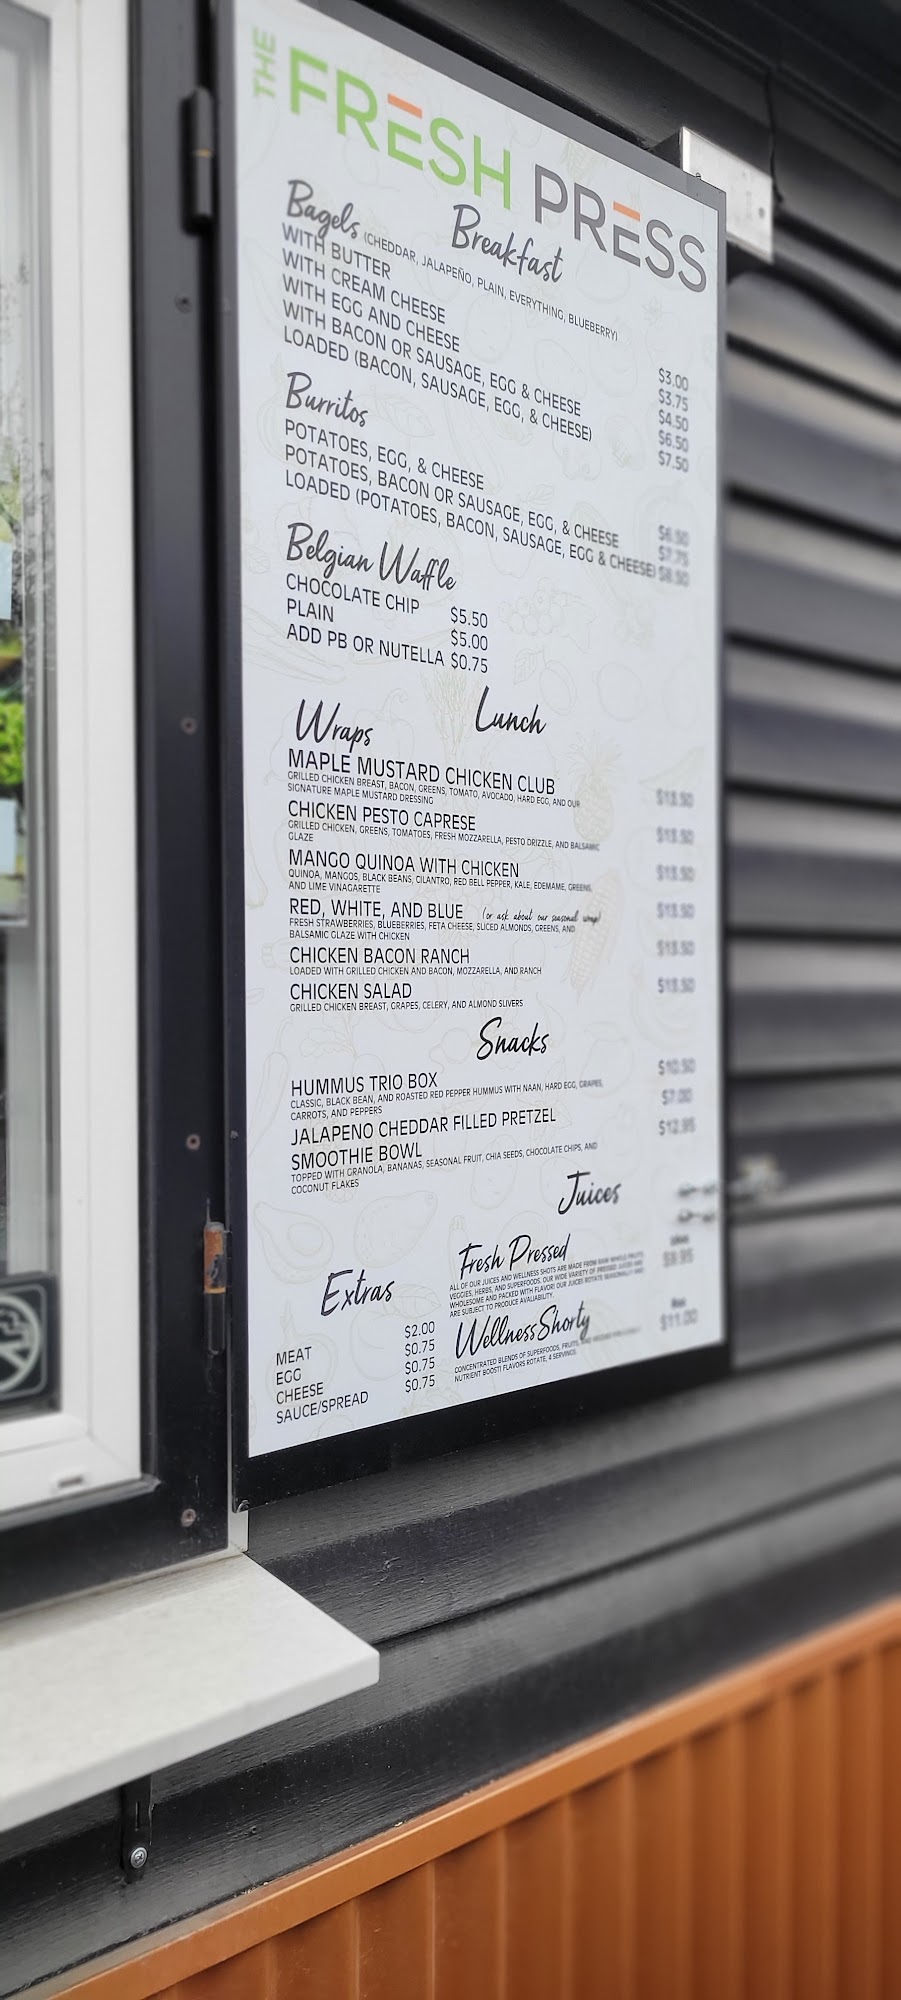 THE FRESH PRESS
Breakfast
Bagels (CHEDDAR, JALAPEÑO, PLAIN, EVERYTHING, BLUEBERRY)
WITH BUTTER $3.00
WITH CREAM CHEESE $3.75
WITH EGG AND CHEESE $4.50
WITH BACON OR SAUSAGE, EGG & CHEESE $6.50
LOADED (BACON, SAUSAGE, EGG, & CHEESE) $7.50
Burritos
POTATOES, EGG, & CHEESE $6.50
POTATOES, BACON OR SAUSAGE, EGG, & CHEESE $7.75
LOADED (POTATOES, BACON, SAUSAGE, EGG & CHEESE) $8.50
Belgian Waffle
CHOCOLATE CHIP $5.50
PLAIN $5.00
ADD PB OR NUTELLA $0.75
Lunch
Wraps
MAPLE MUSTARD CHICKEN CLUB $13.50
GRILLED CHICKEN BREAST, BACON, GREENS, TOMATO, AVOCADO, HARD EGG, AND OUR
SIGNATURE MAPLE MUSTARD DRESSING
CHICKEN PESTO CAPRESE $13.50
GRILLED CHICKEN, GREENS, TOMATOES, FRESH MOZZARELLA, PESTO DRIZZLE, AND BALSAMIC
GLAZE
MANGO QUINOA WITH CHICKEN $13.50
QUINOA, MANGOS, BLACK BEANS, CILANTRO, RED BELL PEPPER, KALE, EDEMAME, GREENS,
AND LIME VINAGARETTE
RED, WHITE, AND BLUE (or ask about our seasonal wrap) $13.50
FRESH STRAWBERRIES, BLUEBERRIES, FETA CHEESE, SLICED ALMONDS, GREENS, AND
BALSAMIC GLAZE WITH CHICKEN
CHICKEN BACON RANCH $13.50
LOADED WITH GRILLED CHICKEN AND BACON, MOZZARELLA, AND RANCH
CHICKEN SALAD $13.50
GRILLED CHICKEN BREAST, GRAPES, CELERY, AND ALMOND SLIVERS
Snacks
HUMMUS TRIO BOX $10.50
CLASSIC, BLACK BEAN, AND ROASTED RED PEPPER HUMMUS WITH NAAN, HARD EGG, GRAPES,
CARROTS, AND PEPPERS
JALAPENO CHEDDAR FILLED PRETZEL $7.00
SMOOTHIE BOWL $12.95
TOPPED WITH GRANOLA, BANANAS, SEASONAL FRUIT, CHIA SEEDS, CHOCOLATE CHIPS, AND
COCONUT FLAKES
Juices
Fresh Pressed $9.95
ALL OF OUR JUICES AND WELLNESS SHOTS ARE MADE FROM RAW WHOLE FRUITS
VEGGIES, HERBS, AND SUPERFOODS. OUR WIDE VARIETY OF PRESSED JUICES ARE
WHOLESOME AND PACKED WITH FLAVOR! OUR JUICES ROTATE SEASONALLY AND
ARE SUBJECT TO PRODUCE AVALIABILITY.
Wellness Shorty $11.00
CONCENTRATED BLENDS OF SUPERFOODS, FRUITS,
NUTRIENT BOOST! FLAVORS ROTATE, 4 SERVINGS.
Extras
MEAT $2.00
EGG $0.75
CHEESE $0.75
SAUCE/SPREAD $0.75